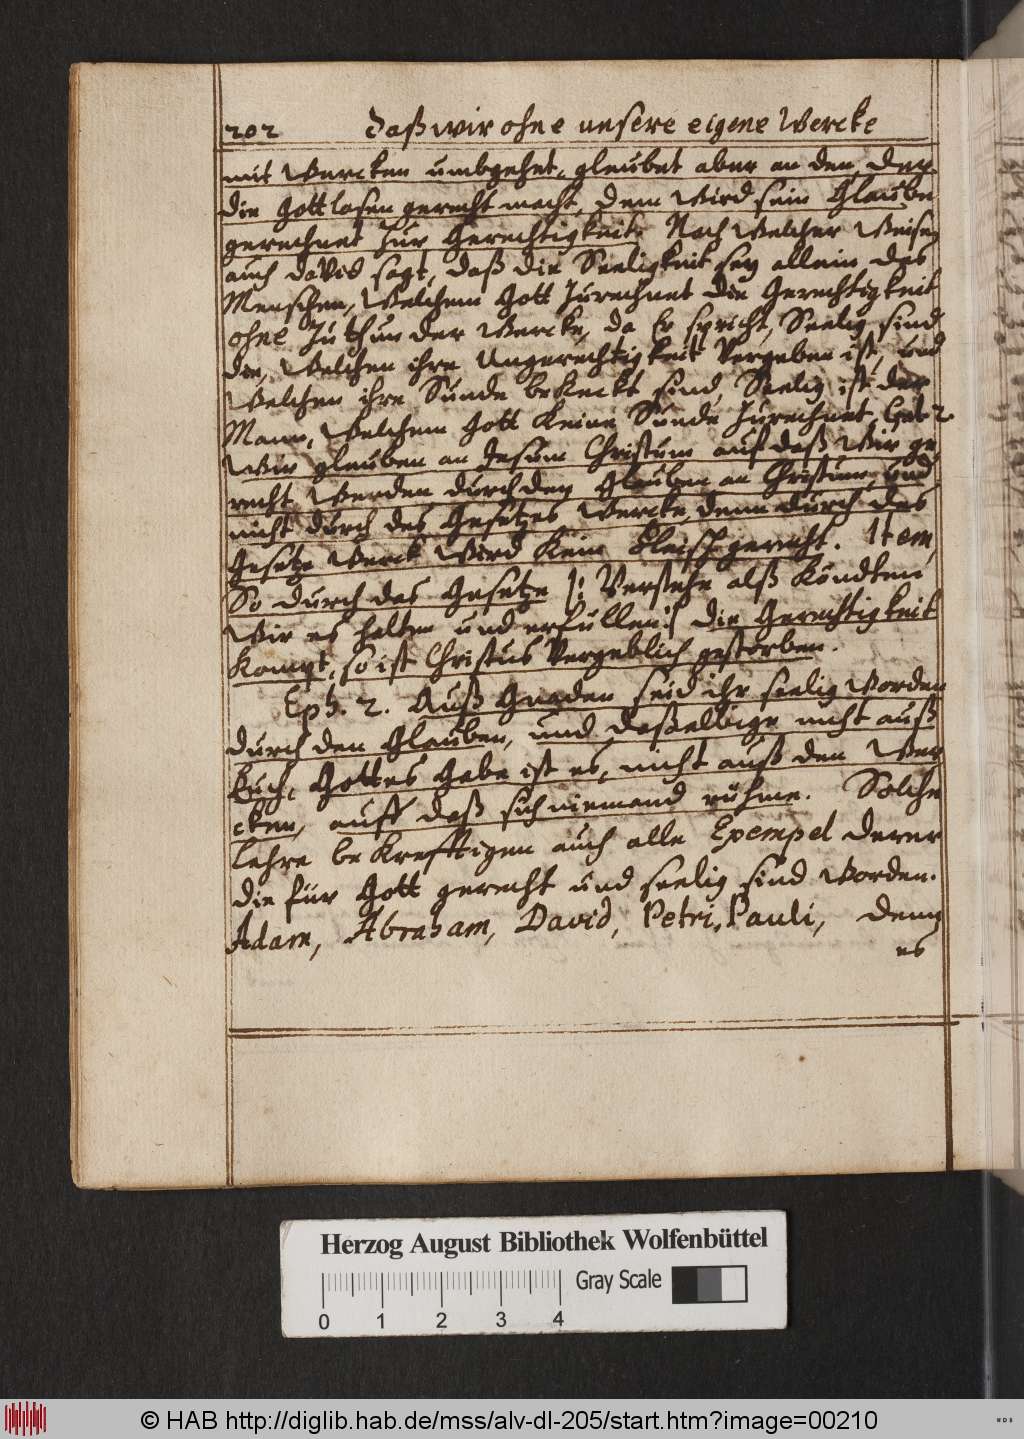 202 Daß wir ohne unsere eigene Wercke
mit Wercken umbgehet, gleubet aber an den, der
die Gottlosen gerecht macht, dem wird sein Glaube
gerechnet zur Gerechtigkeit. Nach welcher Weise
auch David sagt, daß die Seeligkeit sey allein des
Menschen, welchem Gott zurechnet die Gerechtigkeit
ohne zuthun der Wercke, da Er spricht, Seelig sind
die, welchen ihre Ungerechtigkeit vergeben ist, und
welchen ihre Sünde bedeckt sind, Seelig ist der
Mann, welchem Gott keine Sünde zurechnet. Gal. 2.
Wir glauben an Jesum Christum auf daß wir ge
recht werden durch den Glauben an Christum, und
nicht durch des Gesetzes Wercke, denn durch des
Gesetzes Werck wird kein Fleisch gerecht. Item,
So durch das Gesetze |: Verstehe alß köndten
wir es halten und erfüllen :| die Gerechtigkeit
kompt, so ist Christus vergeblich gestorben.
Eph. 2. Auß Gnaden seid ihr seelig worden
durch den Glauben, und daßelbige nicht auß
Euch, Gottes Gabe ist es, nicht auß den Wer
cken, auff daß sich niemand rühme. Solche
lehre bekrefftigen auch alle Exempel derer
die für Gott gerecht und seelig sind worden.
Adam, Abraham, David, Petri, Pauli, denn
es
Herzog August Bibliothek Wolfenbüttel
Gray Scale
0 1 2 3 4
© HAB http://diglib.hab.de/mss/alv-dl-205/start.htm?image=00210